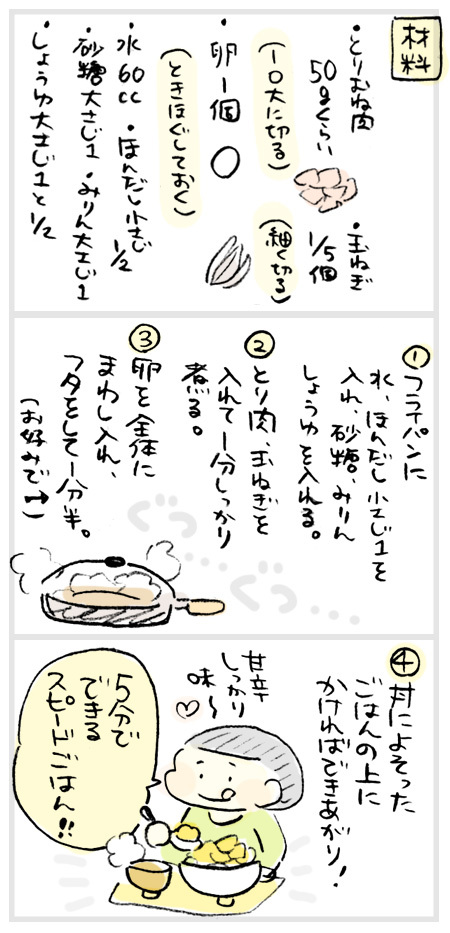 材料
・とりむね肉
50gくらい
(一口大に切る)
・玉ねぎ
1/5個
(細く切る)
・卵1個
(ときほぐしておく)
・水60cc・ほんだし小さじ1/2
・砂糖大さじ1・みりん大さじ1
・しょうゆ大さじ1と1/2
①フライパンに
水、ほんだし小さじ1を
入れ、砂糖、みりん
しょうゆを入れる。
②とり肉、玉ねぎを
入れて1分しっかり
煮る。
③卵を全体に
まわし入れ、
フタをして1分半。
(お好みで→)
ぐっ…
ぐっ…
④丼によそった
ごはんの上に
かければできあがり!
甘辛
しっかり
味〜
5分で
できる
スピードごはん!!